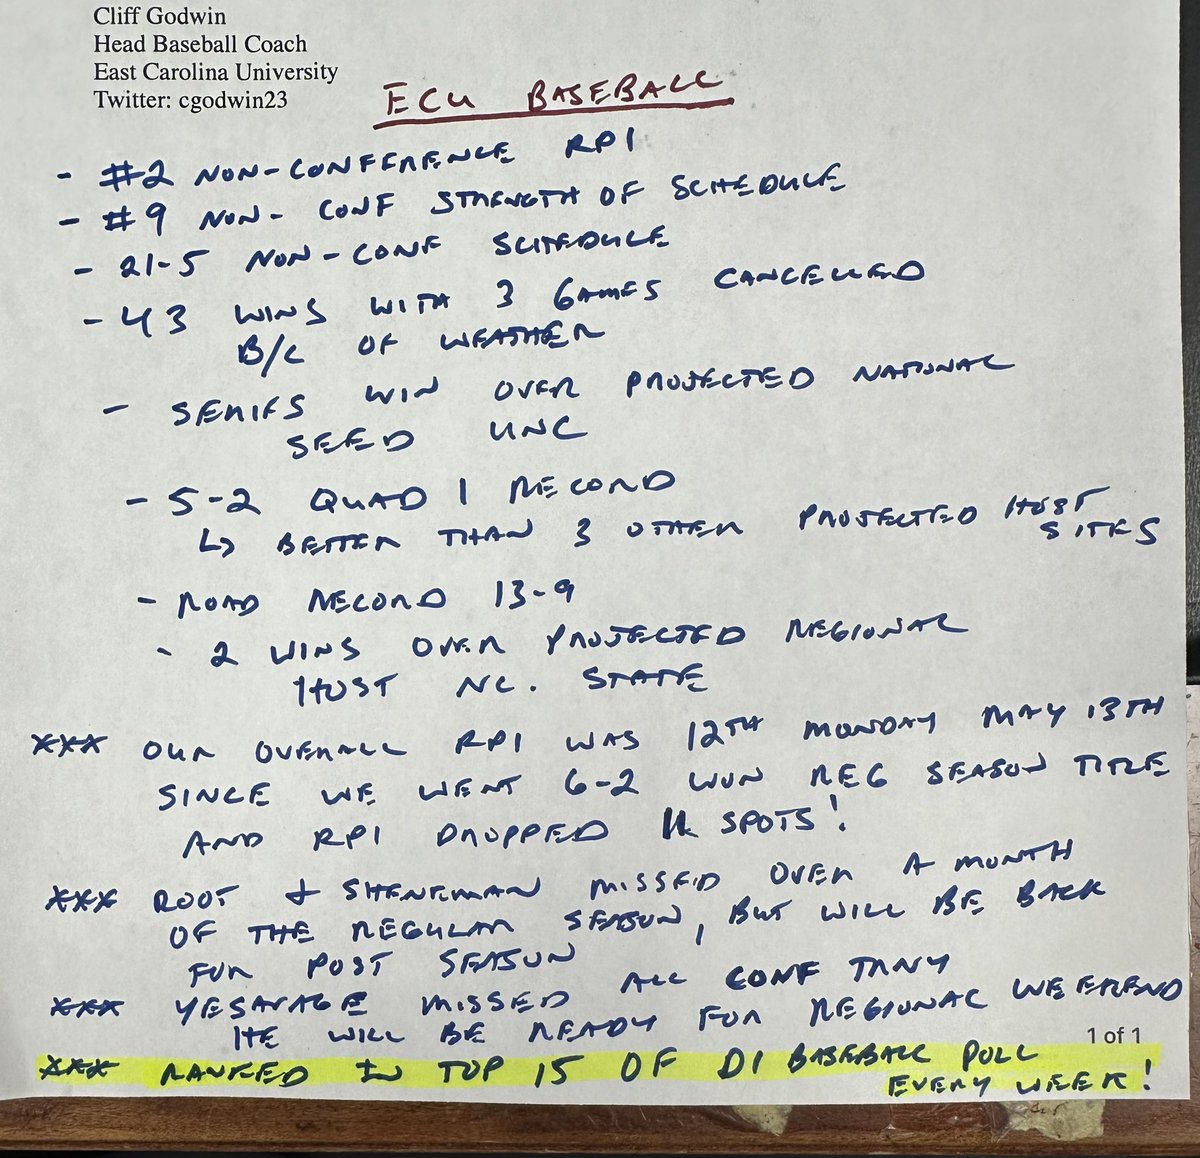 Cliff Godwin
Head Baseball Coach
East Carolina University
Twitter: cgodwin23
ECU BASEBALL
- #2 NON-CONFERENCE RPI
- #9 NON-CONF STRENGTH OF SCHEDULE
- 21-5 NON-CONF SCHEDULE
- 43 WINS WITH 3 GAMES CANCELLED
B/C OF WEATHER
- SERIES WIN OVER PROJECTED NATIONAL
SEED UNC
- 5-2 QUAD 1 RECORD
↳ BETTER THAN 3 OTHER PROJECTED HOST
SITES
- ROAD RECORD 13-9
- 2 WINS OVER PROJECTED REGIONAL
HOST NC. STATE
*** OUR OVERALL RPI WAS 12TH MONDAY MAY 13TH
SINCE WE WENT 6-2 WON REG SEASON TITLE
AND RPI DROPPED SPOTS!
*** ROOT + SHENEMAN MISSED OVER A MONTH
OF THE REGULAR SEASON, BUT WILL BE BACK
FOR POST SEASON
*** YESAVAGE MISSED ALL CONF TRNY
HE WILL BE READY FOR REGIONAL WEEKEND
1 of 1
*** RANKED IN TOP 15 OF D1 BASEBALL POLL
EVERY WEEK!